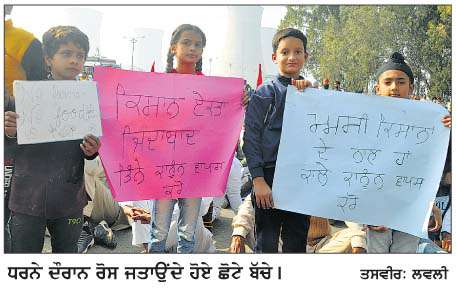 ਕਿਸਾਨ ਏਕਤਾ
ਜ਼ਿੰਦਾਬਾਦ
ਤਿੰਨੇ ਕਾਨੂੰਨ ਵਾਪਸ
ਕਰੋ
ਅਸੀਂ ਕਿਸਾਨਾਂ
ਦੇ ਨਾਲ ਹਾਂ
ਕਾਲੇ ਕਾਨੂੰਨ ਵਾਪਸ
ਕਰੋ
ਧਰਨੇ ਦੌਰਾਨ ਰੋਸ ਜਤਾਉਂਦੇ ਹੋਏ ਛੋਟੇ ਬੱਚੇ। ਤਸਵੀਰ: ਲਵਲੀ